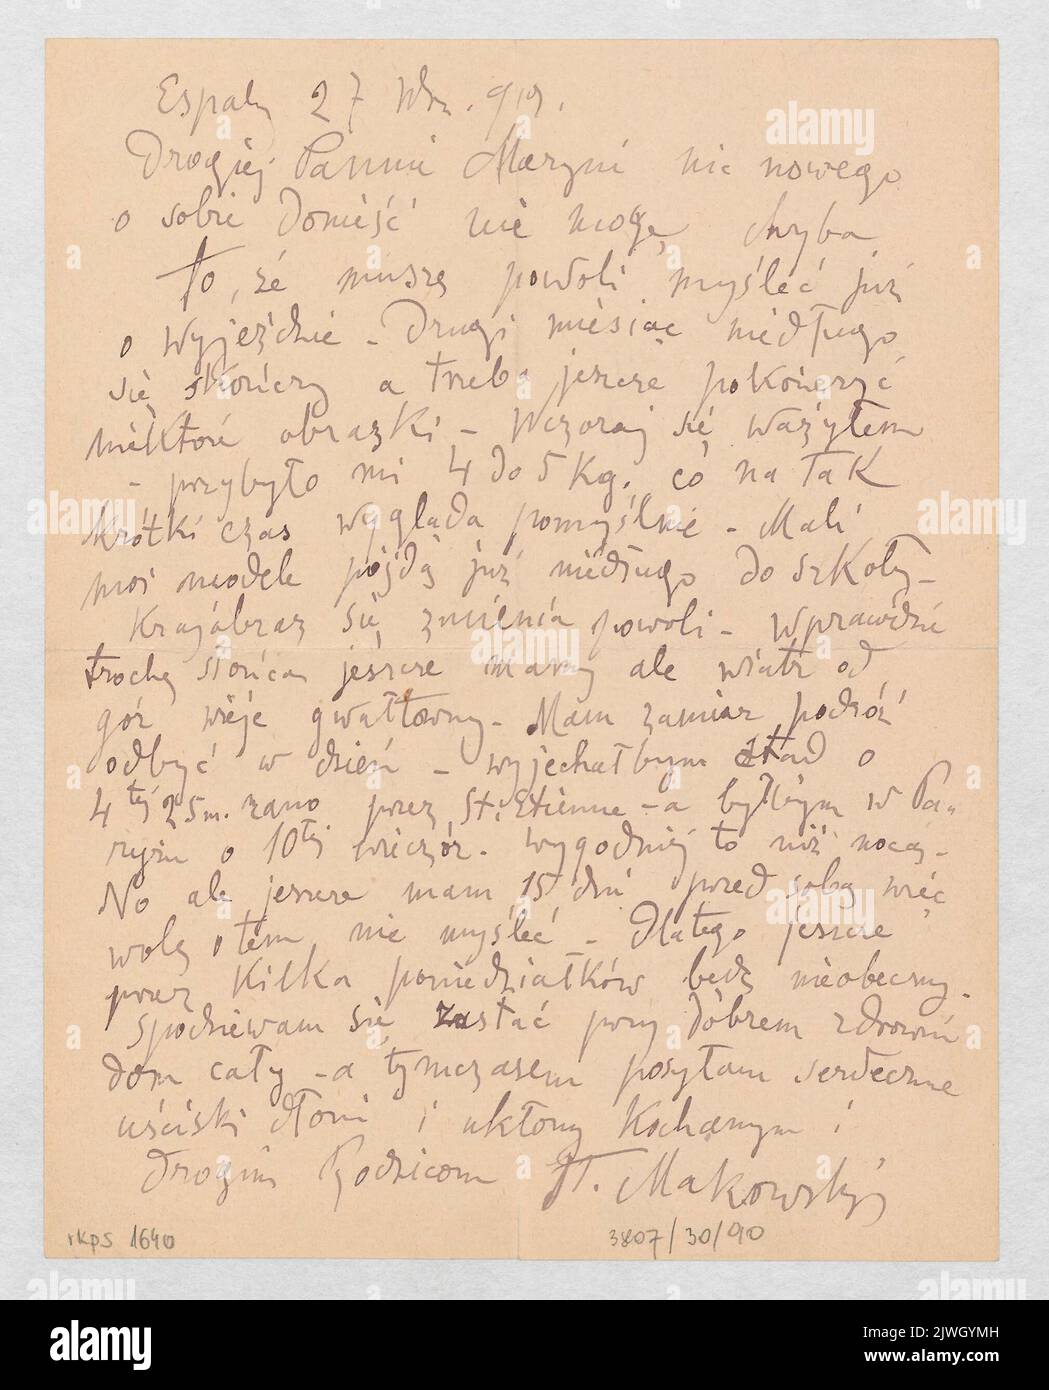 Espaly 27 Wrz. 919.
Drogiej Pannie Maryni nic nowego
o sobie donieść nie mogę chyba
to, że muszę powoli myśleć już
o wyjeździe - Drugi miesiąc niedługo
się skończy a trzeba jeszcze pokończyć
niektóre obrazki - Wczoraj się ważyłem
- przybyło mi 4 do 5 Kg. co na tak
krótki czas wygląda pomyślnie - Mali
moi modele pójdą już niedługo do szkoły -
Krajobraz się zmienia powoli - Wprawdzie
trochę słońca jeszcze mamy ale wiatr od
gór wieje gwałtowny - Mam zamiar podróż
odbyć w dzień - wyjechałbym stąd o
4tej 25 m. rano przez St. Etienne - a byłbym w Pa-
ryżu o 10tej wieczór. Wygodniej to niż nocą -
No ale jeszcze mam 15 dni przed sobą więc
wolę o tem nie myśleć - Dlatego jeszcze
przez kilka poniedziałków będę nieobecny.
Spodziewam się zastać przy dobrem zdrowiu
dom cały - a tymczasem posyłam serdeczne
uściski dłoni i ukłony Kochanym i
Drogim Rodzicom T. Makowski
rkps 1640 3807/30/90
alamy
Image ID: 2JWGYMH
www.alamy.com